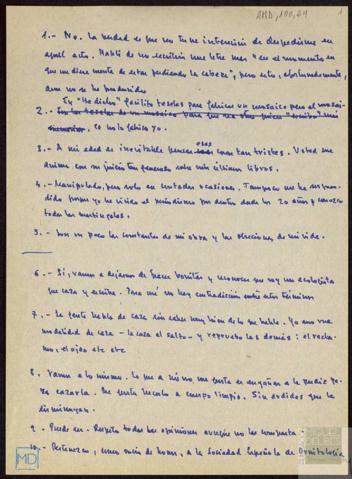 AMD, 100, 24
1
1.- No. La verdad es que no tuve intención de despedirme en
aquel acto. Hablé de no escribir una letra más "en el momento en
que me diera cuenta de estar perdiendo la cabeza", pero esto, afortunadamente,
aún no se ha producido
Tu "He dicho" facilito teselas para fabricar un mosaico pero el mosai-
2.- co lo fabrico yo.
3.- A mi edad es inevitable pensar esas cosas tan tristes. Usted me
anima con su juicio tan generoso sobre mis últimos libros.
4.- Manipulado, pero solo en contadas ocasiones. Tampoco me ha sor-
dido porque yo he vivido el periodismo por dentro desde los 20 años y conozco
todas las martingalas.
5.- Son un poco las constantes de mi obra y las obsesiones de mi vida.
6.- Sí, vamos a dejarnos de hacer bonitas y reconocer que soy un ecologista
que caza y escribe. Para mí no hay contradicción entre estos términos
7.- La gente habla de caza sin saber muy bien de lo que habla. Yo amo una
modalidad de caza - la caza al salto - y repruebo las demás: el recla-
mo, el ojeo etc etc
8. Vamos a lo mismo. Lo que a mí no me gusta es engañar a la perdiz pa-
ra cazarla. Me gusta hacerlo a cuerpo limpio. Sin ardides que la
disminuyan.
9.- Puede ser. Respeto todas las opiniones aunque no las comparta.
10.- Pertenezco, como socio de honor, a la Sociedad Española de Ornitología
MD